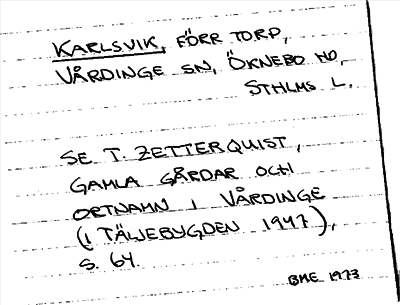 KARLSVIK, FÖRR TORP,
VÅRDINGE SN, ÖKNEBO HD,
STHLMS L.
SE T. ZETTERQUIST,
GAMLA GÅRDAR OCH
ORTNAMN I VÅRDINGE
(I TÄLJEBYGDEN 1947),
S. 64.
BME 1973